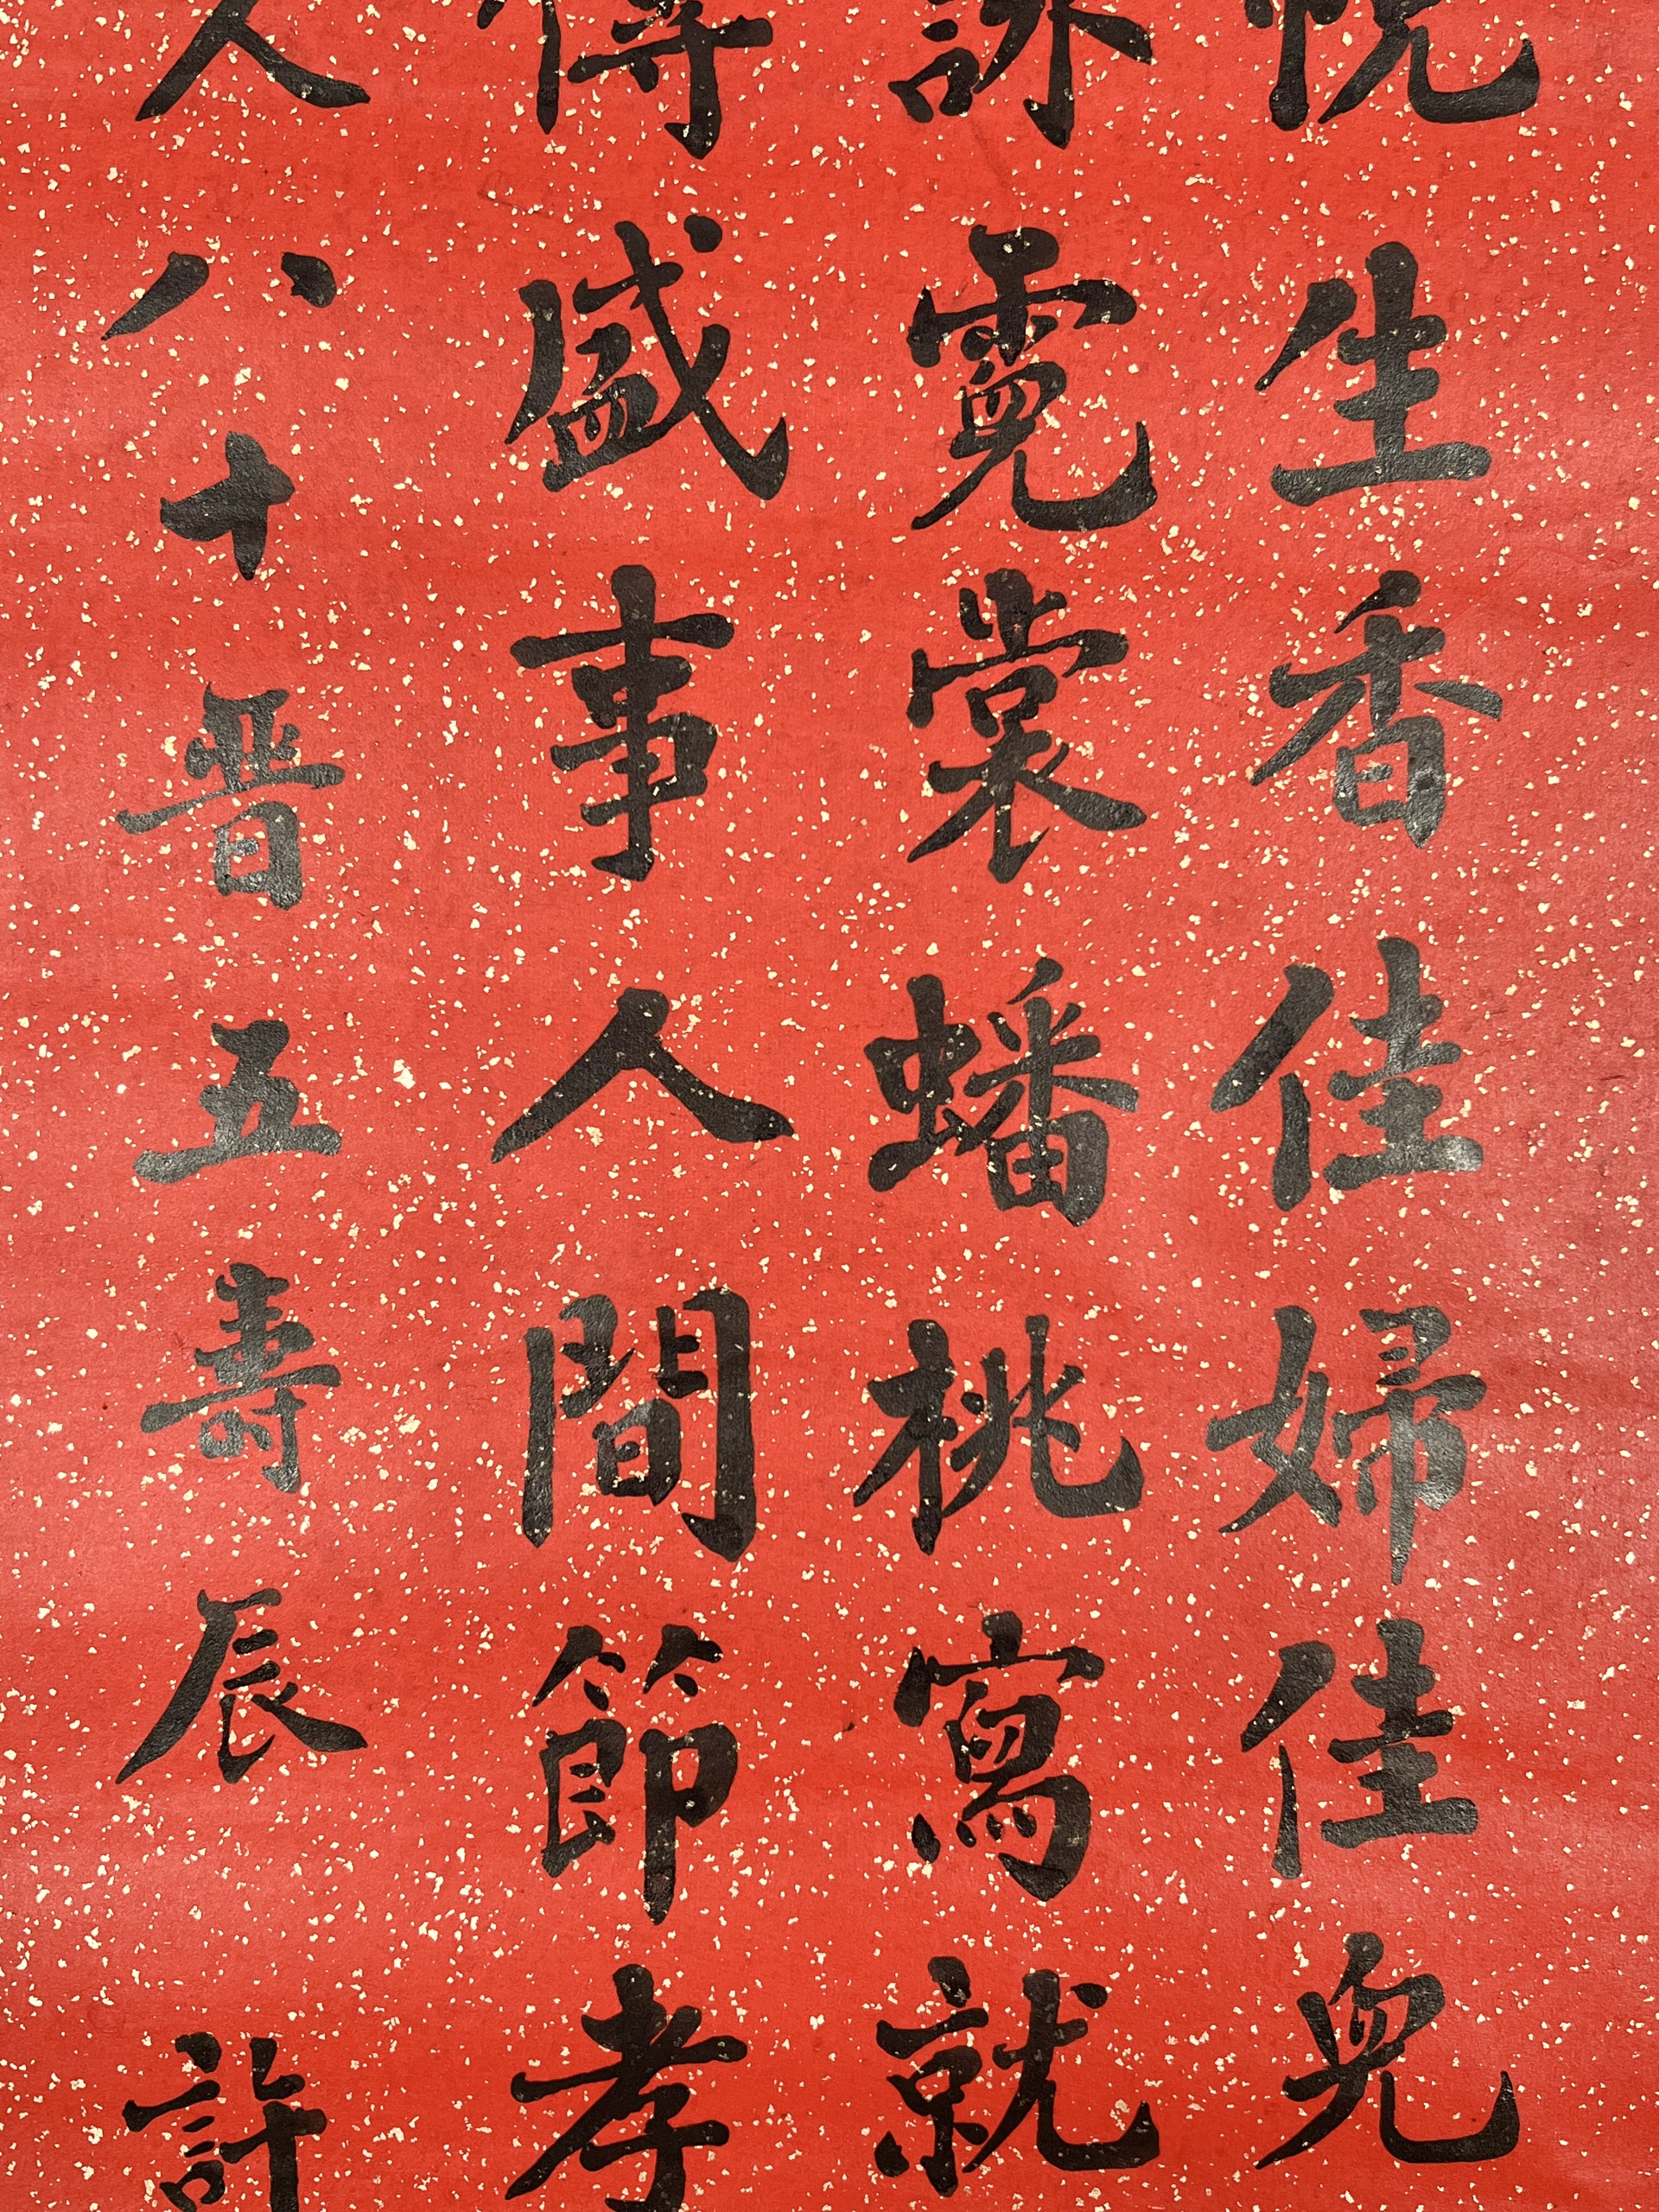 生香佳婦佳兒
詠霓裳蟠桃寫就
傳盛事人間節孝
人八十晉五壽辰許